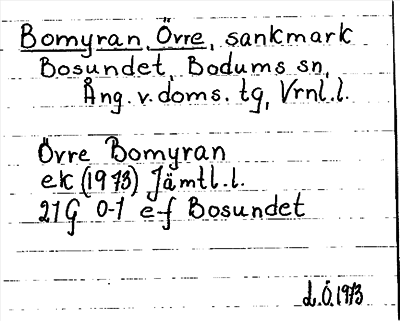 Bomyran, Övre, sankmark
Bosundet, Bodums sn,
Ång. v. doms. tg, Vrnl. l.
Övre Bomyran
ek (1973) Jämtl. l.
21G 0-1 e-f Bosundet
L.Ö. 1973